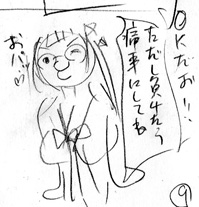 OKだお!!
ただし負けたら
にしてね
おパッ♡
⑨